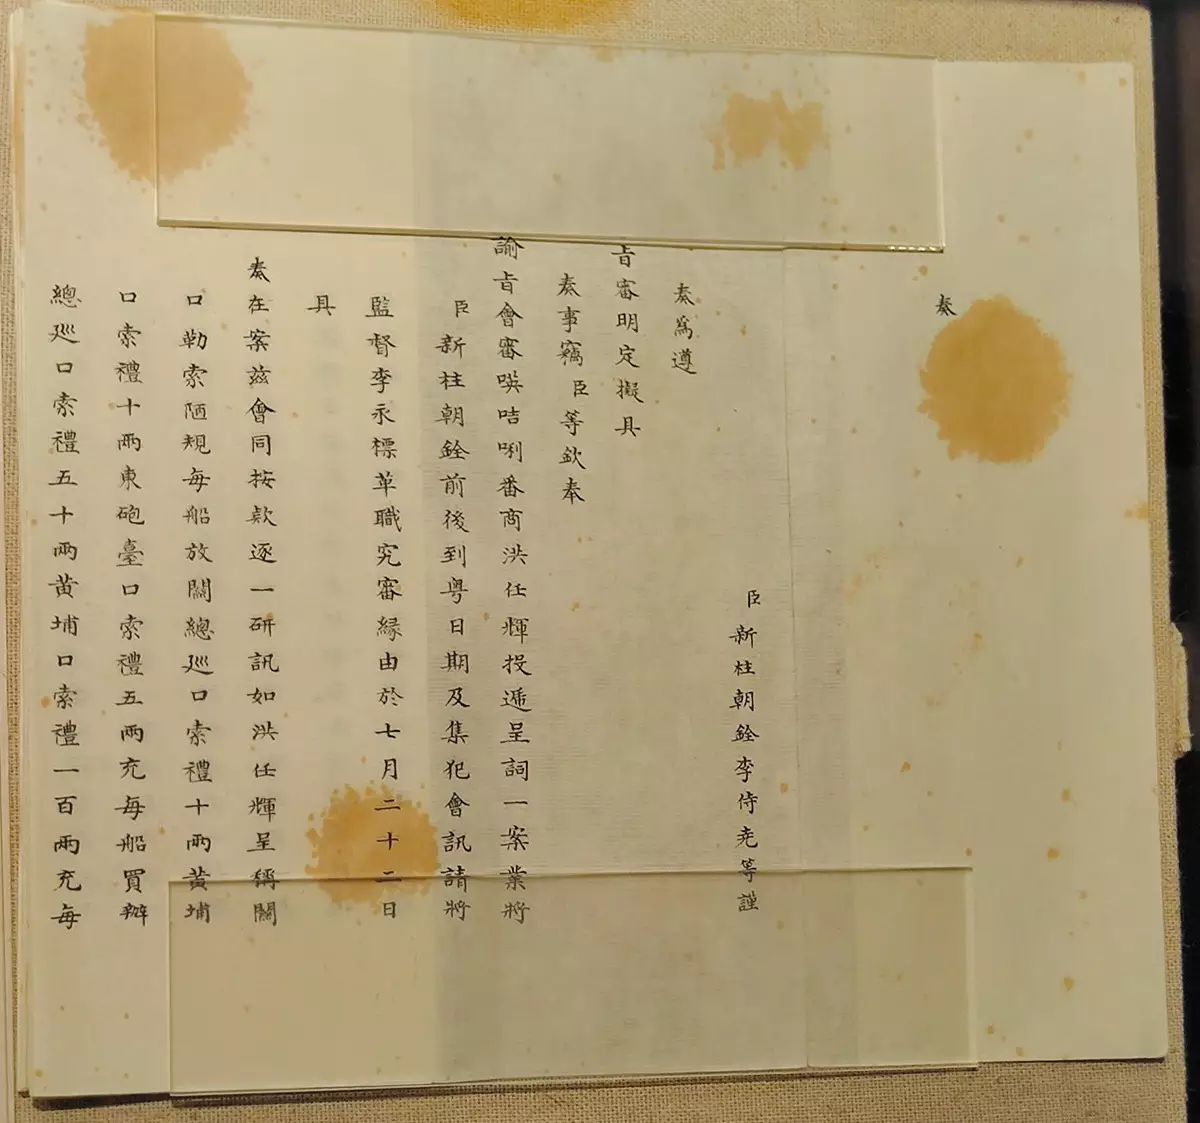 奏
臣新柱朝銓李侍尭等謹
奏為遵
旨審明定擬具
奏事竊臣等欽奉
諭旨會審㗸咭唎番商洪任輝投遞呈詞一案業將
臣新柱朝銓前後到粤日期及集犯會訊請將
監督李永標革職究審緣由於七月二十二日
具
奏在案兹會同按款逐一研訊如洪任輝呈稱關
口勒索陋規每船放關總廵口索禮十兩黄埔
口索禮十兩東砲臺口索禮五兩充每船買辦
總廵口索禮五十兩黄埔口索禮一百兩充每